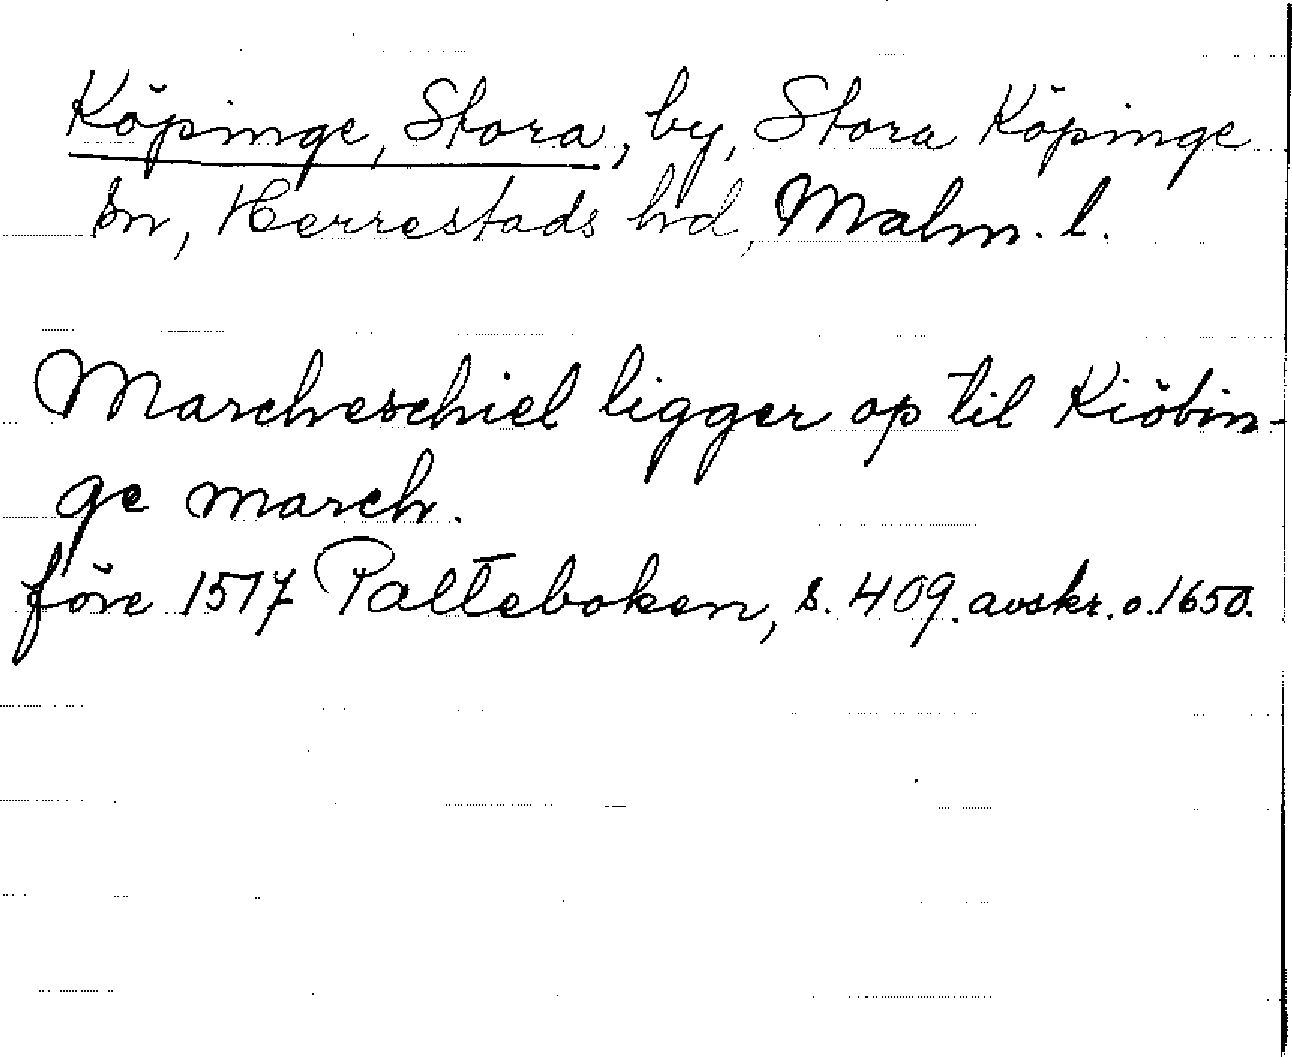 Köpinge, Stora, by, Stora Köpinge
sn, Herrestads hd, Malm. l.
Marcheschiel ligger op til Kiöbin-
ge march.
före 1517 Palteboken, s. 409. avskr. o. 1650.